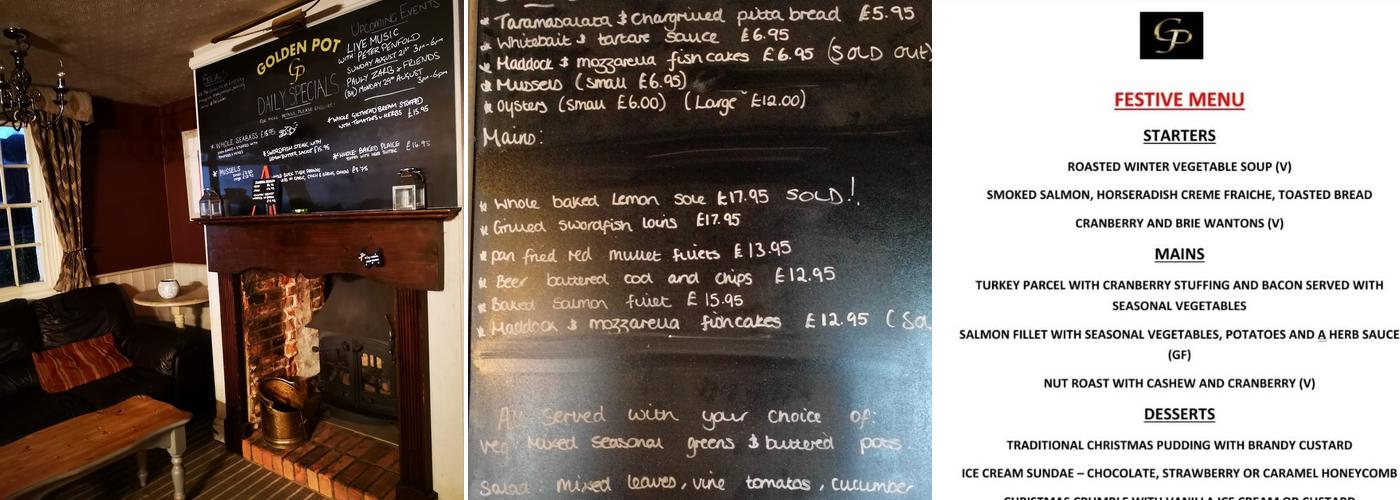 GOLDEN POT
GP
DAILY SPECIALS
UPCOMING EVENTS
LIVE MUSIC
WITH PETER PENFOLD
SUNDAY AUGUST 21ST 3pm-6pm
PAULY ZARB & FRIENDS
(BH) MONDAY 29TH AUGUST
3pm-6pm
* WHOLE SEABASS
* SWORDFISH STEAK WITH
LEMON BUTTER SAUCE £15.95
* WHOLE GILTHEAD BREAM STUFFED
WITH TOMATOES & HERBS £15.95
* WHOLE BAKED PLAICE
£16.95
* MUSSELS
* Taramasalata & Chargrilled pitta bread £5.95
* Whitebait & tartare sauce £6.95
* Haddock & mozzarella fishcakes £6.95 (SOLD OUT)
* Mussels (small £6.95)
* Oysters (small £6.00) (Large £12.00)
Mains:
* Whole baked Lemon sole £17.95 SOLD!!
* Grilled swordfish loins £17.95
* pan fried red mullet fillets £13.95
* Beer battered cod and chips £12.95
* Baked Salmon fillet £15.95
* Haddock & mozzarella fishcakes £12.95 (So
All served with your choice of:
veg Mixed seasonal greens & buttered pots.
Salad mixed leaves, vine tomatos, cucumber
GP
FESTIVE MENU
STARTERS
ROASTED WINTER VEGETABLE SOUP (V)
SMOKED SALMON, HORSERADISH CREME FRAICHE, TOASTED BREAD
CRANBERRY AND BRIE WANTONS (V)
MAINS
TURKEY PARCEL WITH CRANBERRY STUFFING AND BACON SERVED WITH
SEASONAL VEGETABLES
SALMON FILLET WITH SEASONAL VEGETABLES, POTATOES AND A HERB SAUCE
(GF)
NUT ROAST WITH CASHEW AND CRANBERRY (V)
DESSERTS
TRADITIONAL CHRISTMAS PUDDING WITH BRANDY CUSTARD
ICE CREAM SUNDAE – CHOCOLATE, STRAWBERRY OR CARAMEL HONEYCOMB
CHRISTMAS CRUMBLE WITH VANILLA ICE CREAM OR CUSTARD